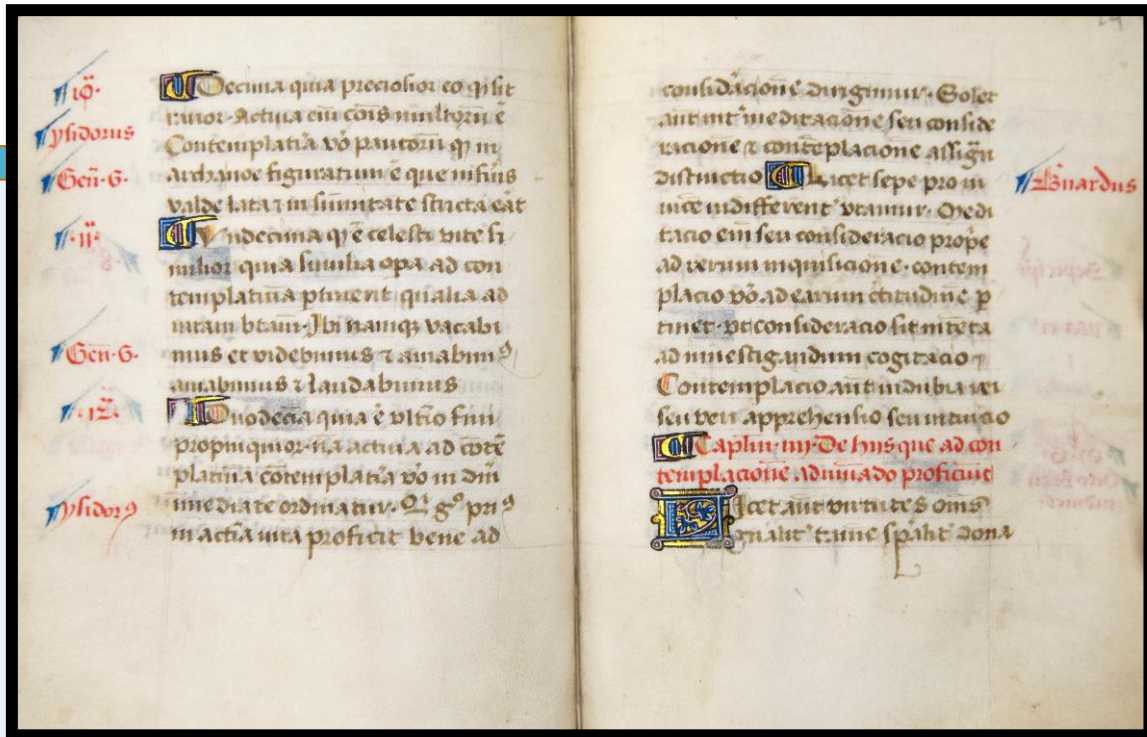 ·10·
ysidorus
Gen̄·G·
·11·
Gen̄·G·
·12·
ysidorꝰ
Decima quia preciosior eo qꝫ sit
rarior Actiua eī cōis multorū ē
Contemplatīa v̄o paucorū qꝫ in
archa noe figuratum ē que inferiꝰ
valde lata ⁊ in sūmitate stricta erāt
Undecima qꝫ ē celesti vite si
milior quia similia opa ad con
templatiuā ptinent qualia ad
uitam btām· Ibi namqꝫ vacabi
mus et videbimus ⁊ amabimꝰ
amabimus ⁊ laudabimus
Duodecīa quia ē vltīo fini
propinquior nā actiua ad cōtē
platiuā cōtemplatīa v̄o in dm̄
īmediate ordinatur· Qi gͦ priꝰ
in actīa uita proficit bene ad
considacionē dirigimur· Solet
aut int̄ meditacionē seu conside
racionē ⁊ contēplacionē assigna
distinctio Licet sepe pro in
uice indifferent̄ vtamur· Medi
tacio eīm seu consideracio propē
ad rerum inquisicionē· contem
placio v̄o ad earum c̄titudinē p
tinet· vt consideracio sit intēta
ad inuestigandum cogitacio
Contemplacio aut indubia rei
seu veri apprehensio seu intuicio
Caplm· iiij· De hiis que ad con
templacionē adiuuādo proficiūt
Licet aut virtutes om̄s
gnalit̄ tamē spālit̄ dona
B̄nardus